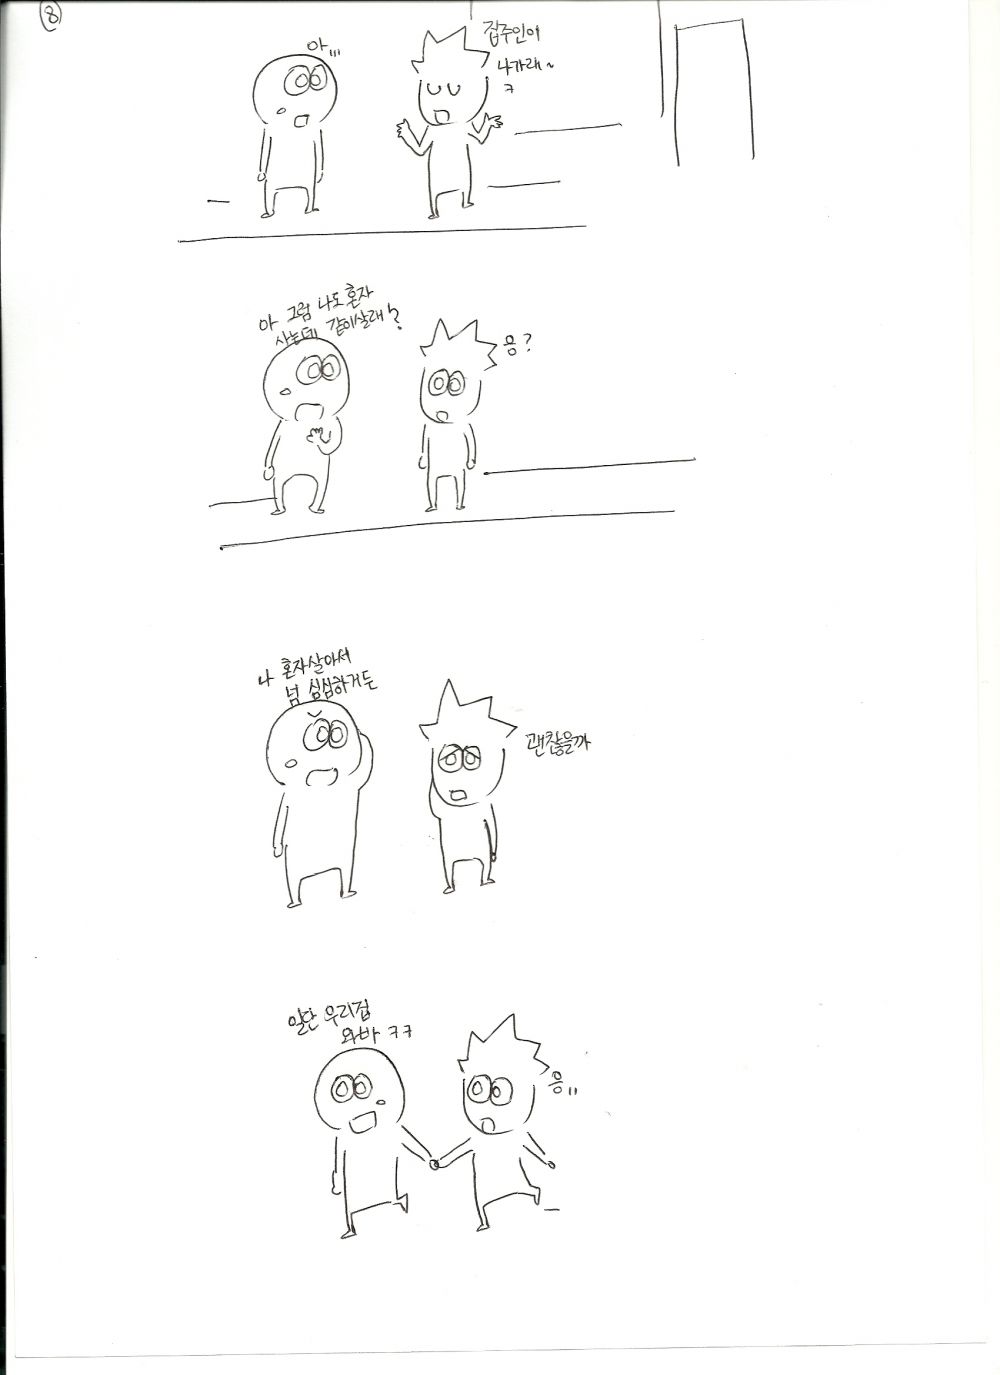 8
아,,,
집주인이
나가래~
ㅋ
아 그럼 나도 혼자
사는데 같이살래?
응?
나 혼자살아서
넘 심심하거든
괜찮을까
일단 우리집
와바 ㅋㅋ
응,,